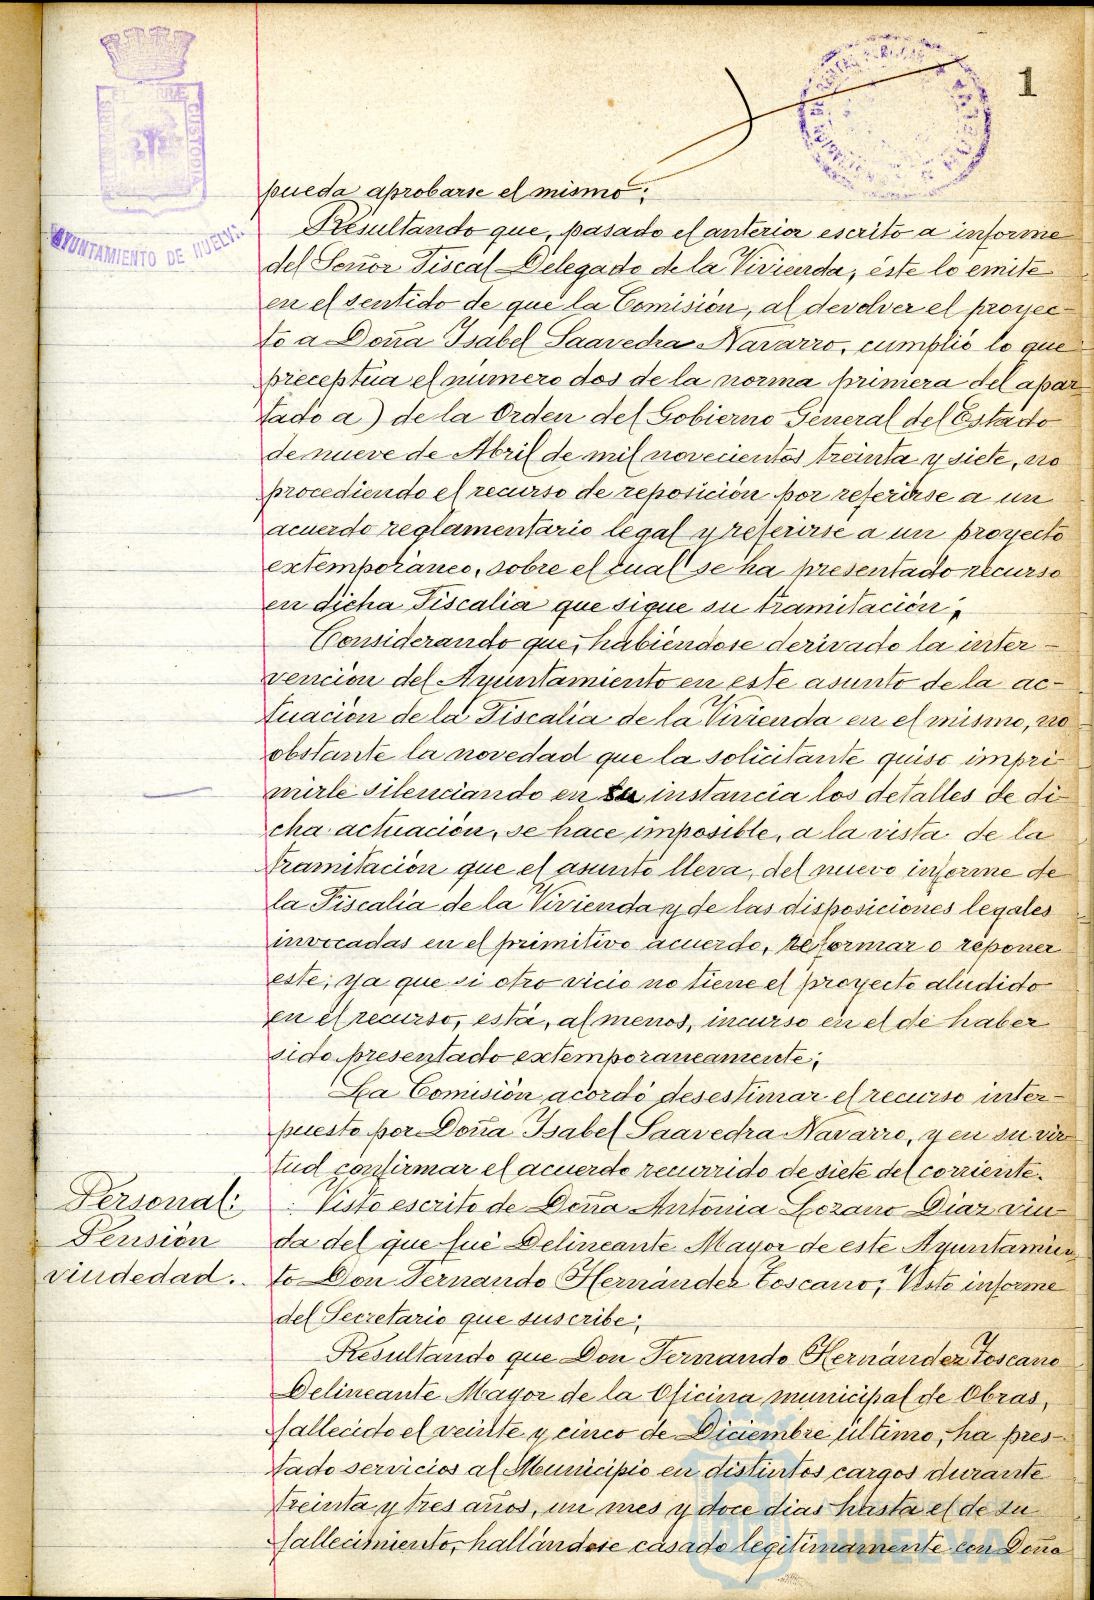 1
PORTUS MARIS ET TERRÆ CUSTODIA
AYUNTAMIENTO DE HUELVA
HUELVA
pueda aprobarse el mismo;
Resultando que, pasado el anterior escrito a informe
del Señor Fiscal Delegado de la Vivienda, éste lo emite
en el sentido de que la Comisión, al devolver el proyec-
to a Doña Isabel Saavedra Navarro, cumplió lo que
preceptúa el número dos de la norma primera del apar-
tado a) de la Orden del Gobierno General del Estado
de nueve de Abril de mil novecientos treinta y siete, no
procediendo el recurso de reposición por referirse a un
acuerdo reglamentario legal y referirse a un proyecto
extemporáneo, sobre el cual se ha presentado recurso
en dicha Fiscalia que sigue su tramitación;
Considerando que, habiéndose derivado la inter-
vención del Ayuntamiento en este asunto de la ac-
tuación de la Fiscalía de la Vivienda en el mismo, no
obstante la novedad que la solicitante quiso impri-
mirle silenciando en su instancia los detalles de di-
cha actuación, se hace imposible, a la vista de la
tramitación que el asunto lleva, del nuevo informe de
la Fiscalía de la Vivienda y de las disposiciones legales
invocadas en el primitivo acuerdo, reformar o reponer
este; ya que si otro vicio no tiene el proyecto aludido
en el recurso, está, al menos, incurso en el de haber
sido presentado extemporaneamente;
La Comisión acordó desestimar el recurso inter-
puesto por Doña Isabel Saavedra Navarro, y en su vir-
tud confirmar el acuerdo recurrido de siete del corriente.
Personal:
Pensión
viudedad.
Visto escrito de Doña Antonia Lozano Díaz viu-
da del que fué Delineante Mayor de este Ayuntamien-
to Don Fernando Hernández Toscano; Visto informe
del Secretario que suscribe;
Resultando que Don Fernando Hernández Toscano
Delineante Mayor de la Oficina municipal de Obras,
fallecido el veinte y cinco de Diciembre último, ha pres-
tado servicios al Municipio en distintos cargos durante
treinta y tres años, un mes y doce dias hasta el de su
fallecimiento, hallándose casado legítimamente con Doña
HUELVA